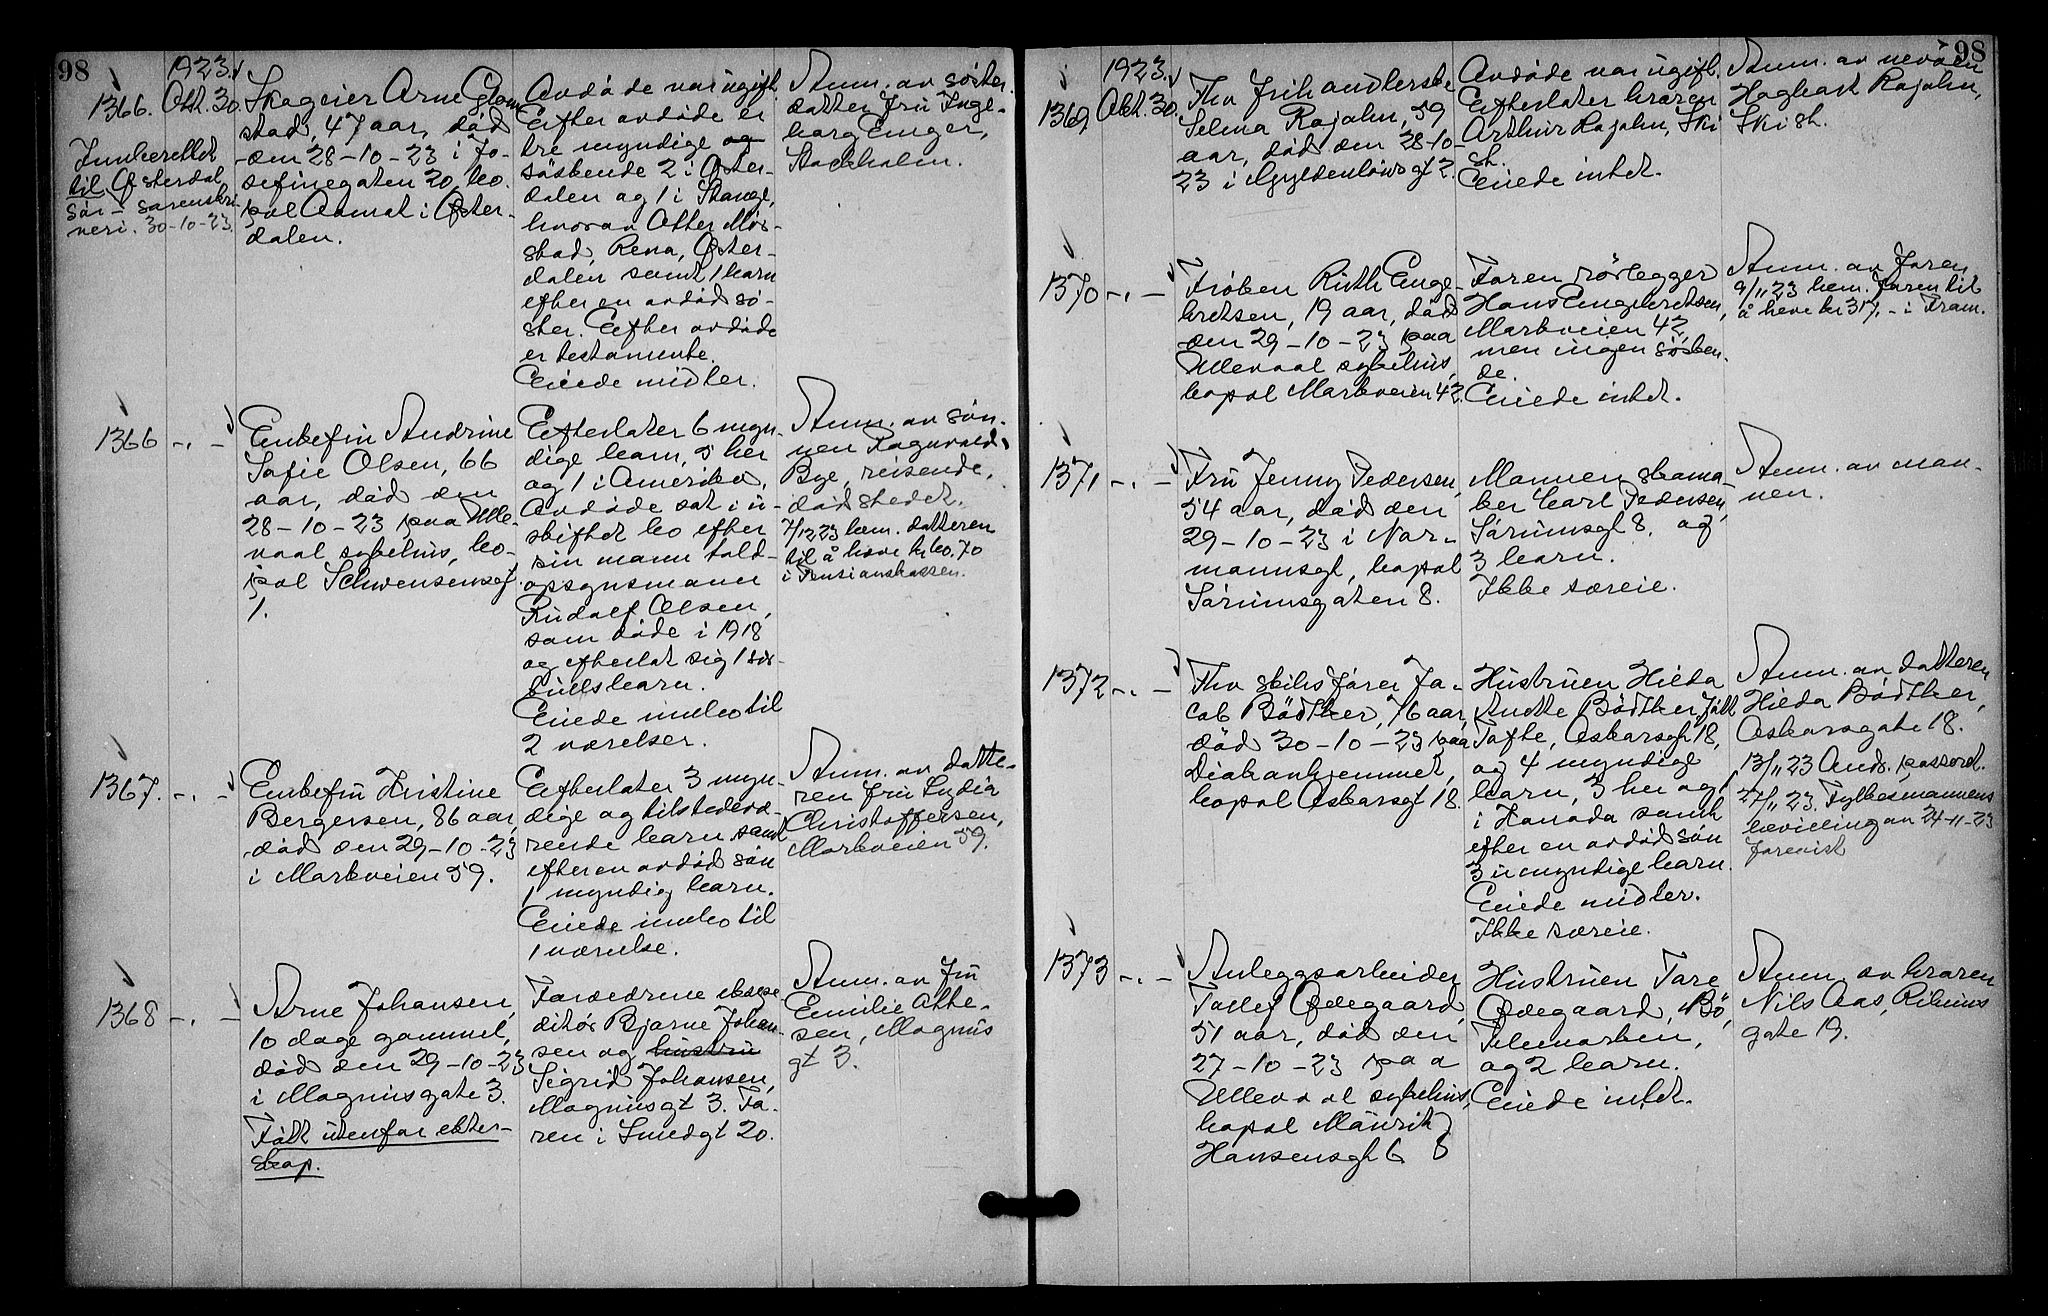 98
1923.
1366. Okt. 30.
Innberettet
til Østerdal
sør- sorenskri-
veri. 30-10-23.
Skogeier Arne Glom
stad, 47 aar, død
den 28-10-23 i Jo-
sefinegaten 20, bo-
pæl Aamot i Øster-
dalen.
Avdøde var ugift.
Efter avdøde er
tre myndige og
søskende 2 i Øster-
dalen og 1 i Stange,
hvorav Otter
stad, Rena, Øster-
dalen samt 1 barn
efter en avdød sø-
ster. Efter avdøde
er testamente.
Eiede midler.
Anm. av søster-
datter fru Inge-
borg Enger,
Stockholm.
1366 -"-
Enkefru Andrine
Sofie Olsen, 66
aar, død den
28-10-23 paa Ulle-
vaal sykehus, bo-
pæl Schwensensgt.
1.
Efterlater 6 myn-
dige barn, 5 her
og 1 i Amerika.
Avdøde sat i u-
skiftet bo efter
sin mann told-
opsynsmann
Rudolf Olsen,
som døde i 1918
og efterlot sig 1 sær-
kullsbarn.
Eiede innbo til
2 værelser.
Anm. av søn-
nen Ragnvald
Bye, reisende,
dødsstedet.
7/12 23 bem. datteren
til å heve kr 60.70
i Pensionskassen.
1367. -"-
Enkefru Kristine
Bergersen, 86 aar,
død den 29-10-23
i Markveien 59.
Efterlater 3 myn-
dige og tilstedevæ-
rende barn samt
efter en avdød søn
1 myndig barn.
Eiede innbo til
1 værelse.
Anm. av datte-
ren fru Lydia
Christoffersen,
Markveien 59.
1368 -"-
Arne Johansen,
10 dage gammel,
død den 29-10-23
i Magnusgate 3.
Født utenfor ekter-
skap.
Forældrene ekspe
ditør Bjarne Johan-
sen og hustru
Sigrid Johansen,
Magnusgt 3. Fa-
ren i Smedgt 20.
Anm. av fru
Emilie Otte-
sen, Magnus
gt 3.
98
1923.
1369 Okt. 30.
Fhv frihandlerske
Selma Rojahn, 59
aar, død den 28-10-
23 i Gyldenløves gt 2.
Avdøde var ugift.
Efterlater broren
Arthur Rojahn, Ski
st.
Eiede intet.
Anm. av nevøen
Hagbart Rojahn,
Ski st.
1370 -"-
Frøken Ruth Enge-
bretsen, 19 aar, død
den 29-10-23 paa
Ullevaal sykehus,
bopæl Markveien 42.
Faren rørlegger
Hans Engebretsen,
Markveien 42,
men ingen sösken-
de.
Eiede intet.
Anm. av faren
9/11 23 bem. faren til
å heve kr 317,- i Fram.
1371 -"-
Fru Jenny Pedersen,
54 aar, død den
29-10-23 i Nor-
mannsgt, bopæl
Sørumsgaten 8.
Mannen skoma-
ker Carl Pedersen,
Sørumsgt 8, og
3 barn.
Ikke særeie.
Anm. av man-
nen.
1372 -"-
Fhv skibsfører Ja-
cob Bödtker, 76 aar,
død 30-10-23 paa
Diakonhjemmet,
bopæl Oskarsgt 18.
Hustruen Hilda
Anette Bödtker født
Tofte, Oskarsgt 18,
og 4 myndige
barn, 3 her og 1
i Kanada samt
efter en avdød søn
3 umyndige barn.
Eiede midler.
Ikke særeie.
Anm. av datteren
Hilda Bödtker,
Oskarsgate 18.
13/11 23 Ands. passord.
27/11 23. Fylkesmannens
bevilling av 24-11-23
forevist
1373 -"-
Anleggsarbeider
Tollef Ødegaard,
51 aar, død den
27-10-23 paa
Ullevaal sykehus,
bopæl Mauritz
Hansensgt 6
Hustruen Tore
Ødegaard, Bø,
Telemarken,
og 2 barn.
Eiede intet.
Anm. av broren
Nils Aas,
gate 19.